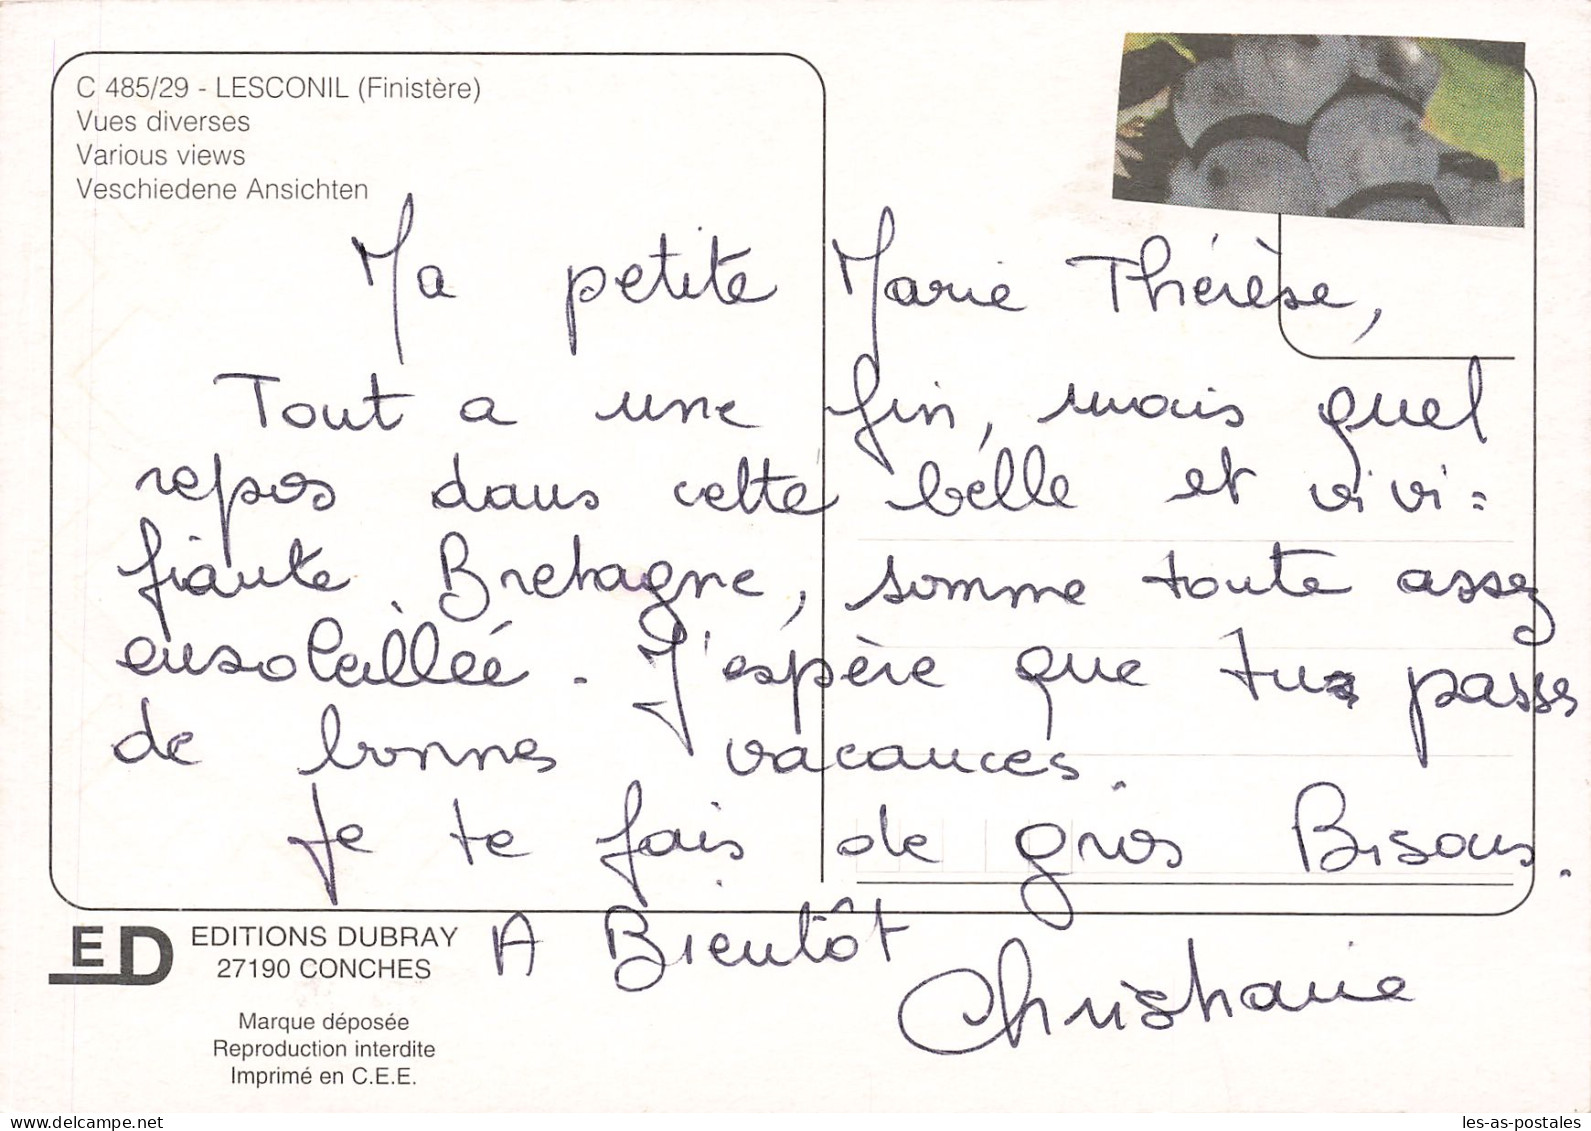 C 485/29 - LESCONIL (Finistère)
Vues diverses
Various views
Veschiedene Ansichten
Ma petite Marie Thérèse,
Tout a une fin, mais quel
repos dans cette belle et vivi=
fiante Bretagne, somme toute assez
ensoleillée. J'espère que tu passes
de bonnes vacances.
Je te fais de gros Bisous.
A Bientôt
Christiane
ED EDITIONS DUBRAY
27190 CONCHES
Marque déposée
Reproduction interdite
Imprimé en C.E.E.
delcampe.net
les-as-postales